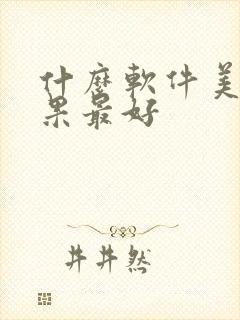 什麼軟件美
果最好
井井然